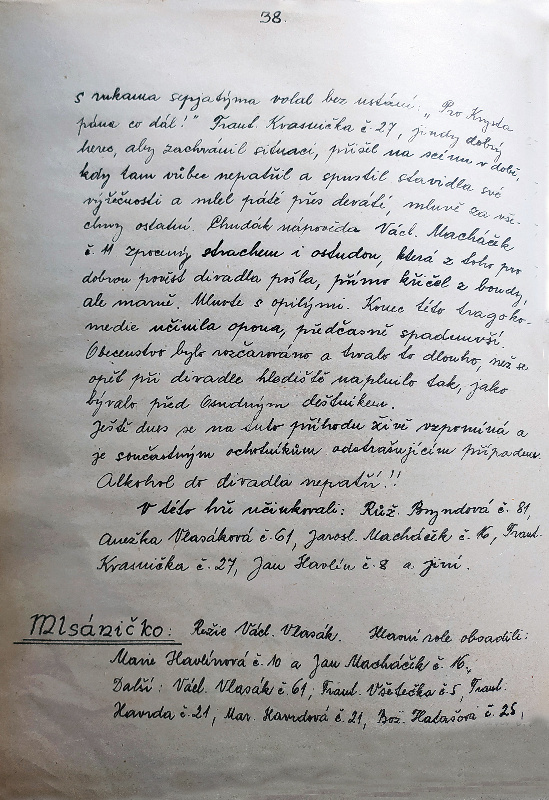 38.
s rukama sepjatýma volal bez ustání: „Pro Krysta
pána co dál!" Frant. Krasnička č. 27, jindy dobrý
herec, aby zachránil situaci, přišel na scénu v době,
kdy tam vůbec nepatřil a spustil stavidla své
výřečnosti a mlel páté přes deváté, mluvě za vše-
chny ostatní. Chudák nápověda Václ. Macháček
č. 11 zpocený strachem i ostudou, která z toho pro
dobrou pověst divadla pošla, přímo křičel z boudy,
ale marně. Mluvte s opilými. Konec této tragoko-
medie učinila opona, předčasně spadnuvší.
Obecenstvo bylo rozčarováno a trvalo to dlouho, než se
opět při divadle hlediště naplnilo tak, jako
bývalo před Osudným deštníkem.
Ještě dnes se na tuto příhodu živě vzpomíná a
je součastným ochotníkům odstrašujícím případem.
Alkohol do divadla nepatří!!
V této hře účinkovali: Růž. Bryndová č. 81,
Anežka Vlasáková č. 61, Jarosl. Macháček č. 16, Frant.
Krasnička č. 27, Jan Havlín č. 8 a jiní.
Mlsáníčko: Režie Václ. Vlasák. Hlavní role obsadili:
Marie Havlínová č. 10 a Jan Macháček č. 16.,
Další: Václ. Vlasák č. 61, Frant. Všetečka č. 5, Frant.
Havrda č. 21, Mar. Havrdová č. 21, Bož. Hatašová č. 25,